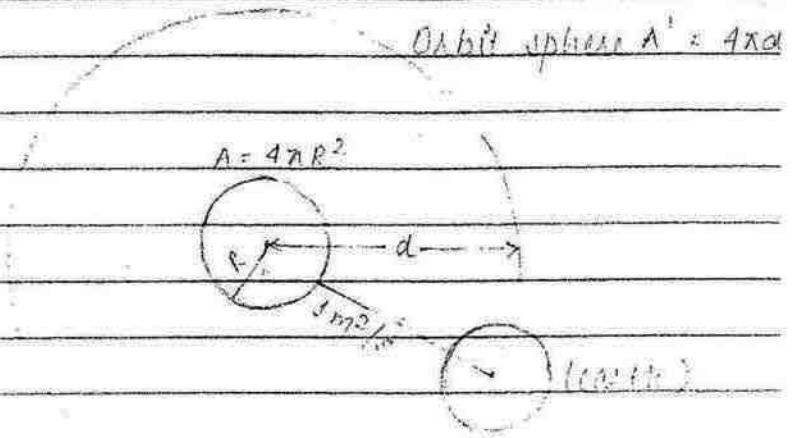 Orbit sphere A' = 4πd
A = 4πR²
R
d
(earth)